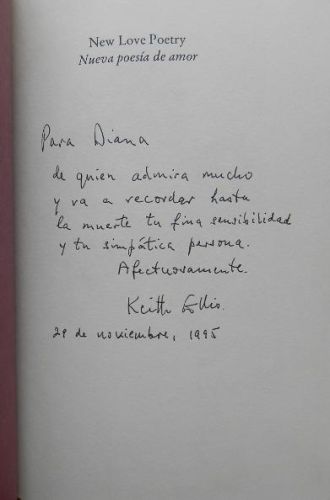 New Love Poetry
Nueva poesía de amor
Para Diana
de quien admira mucho
y va a recordar hasta
la muerte tu fina sensibilidad
y tu simpática persona.
Afectuosamente.
Keith Ellis
29 de noviembre, 1995